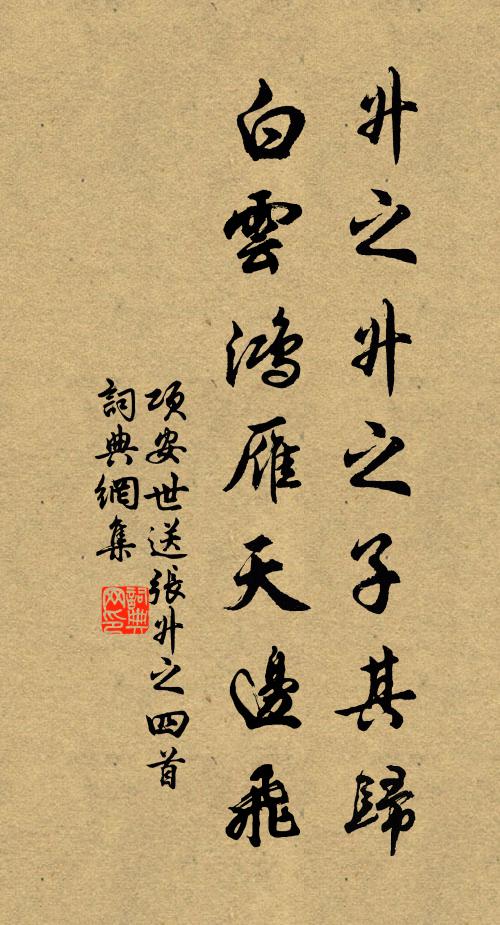 升之升之子其歸
白雲鴻雁天邊飛
項安世送張升之四首
詞典網集
詞典网印